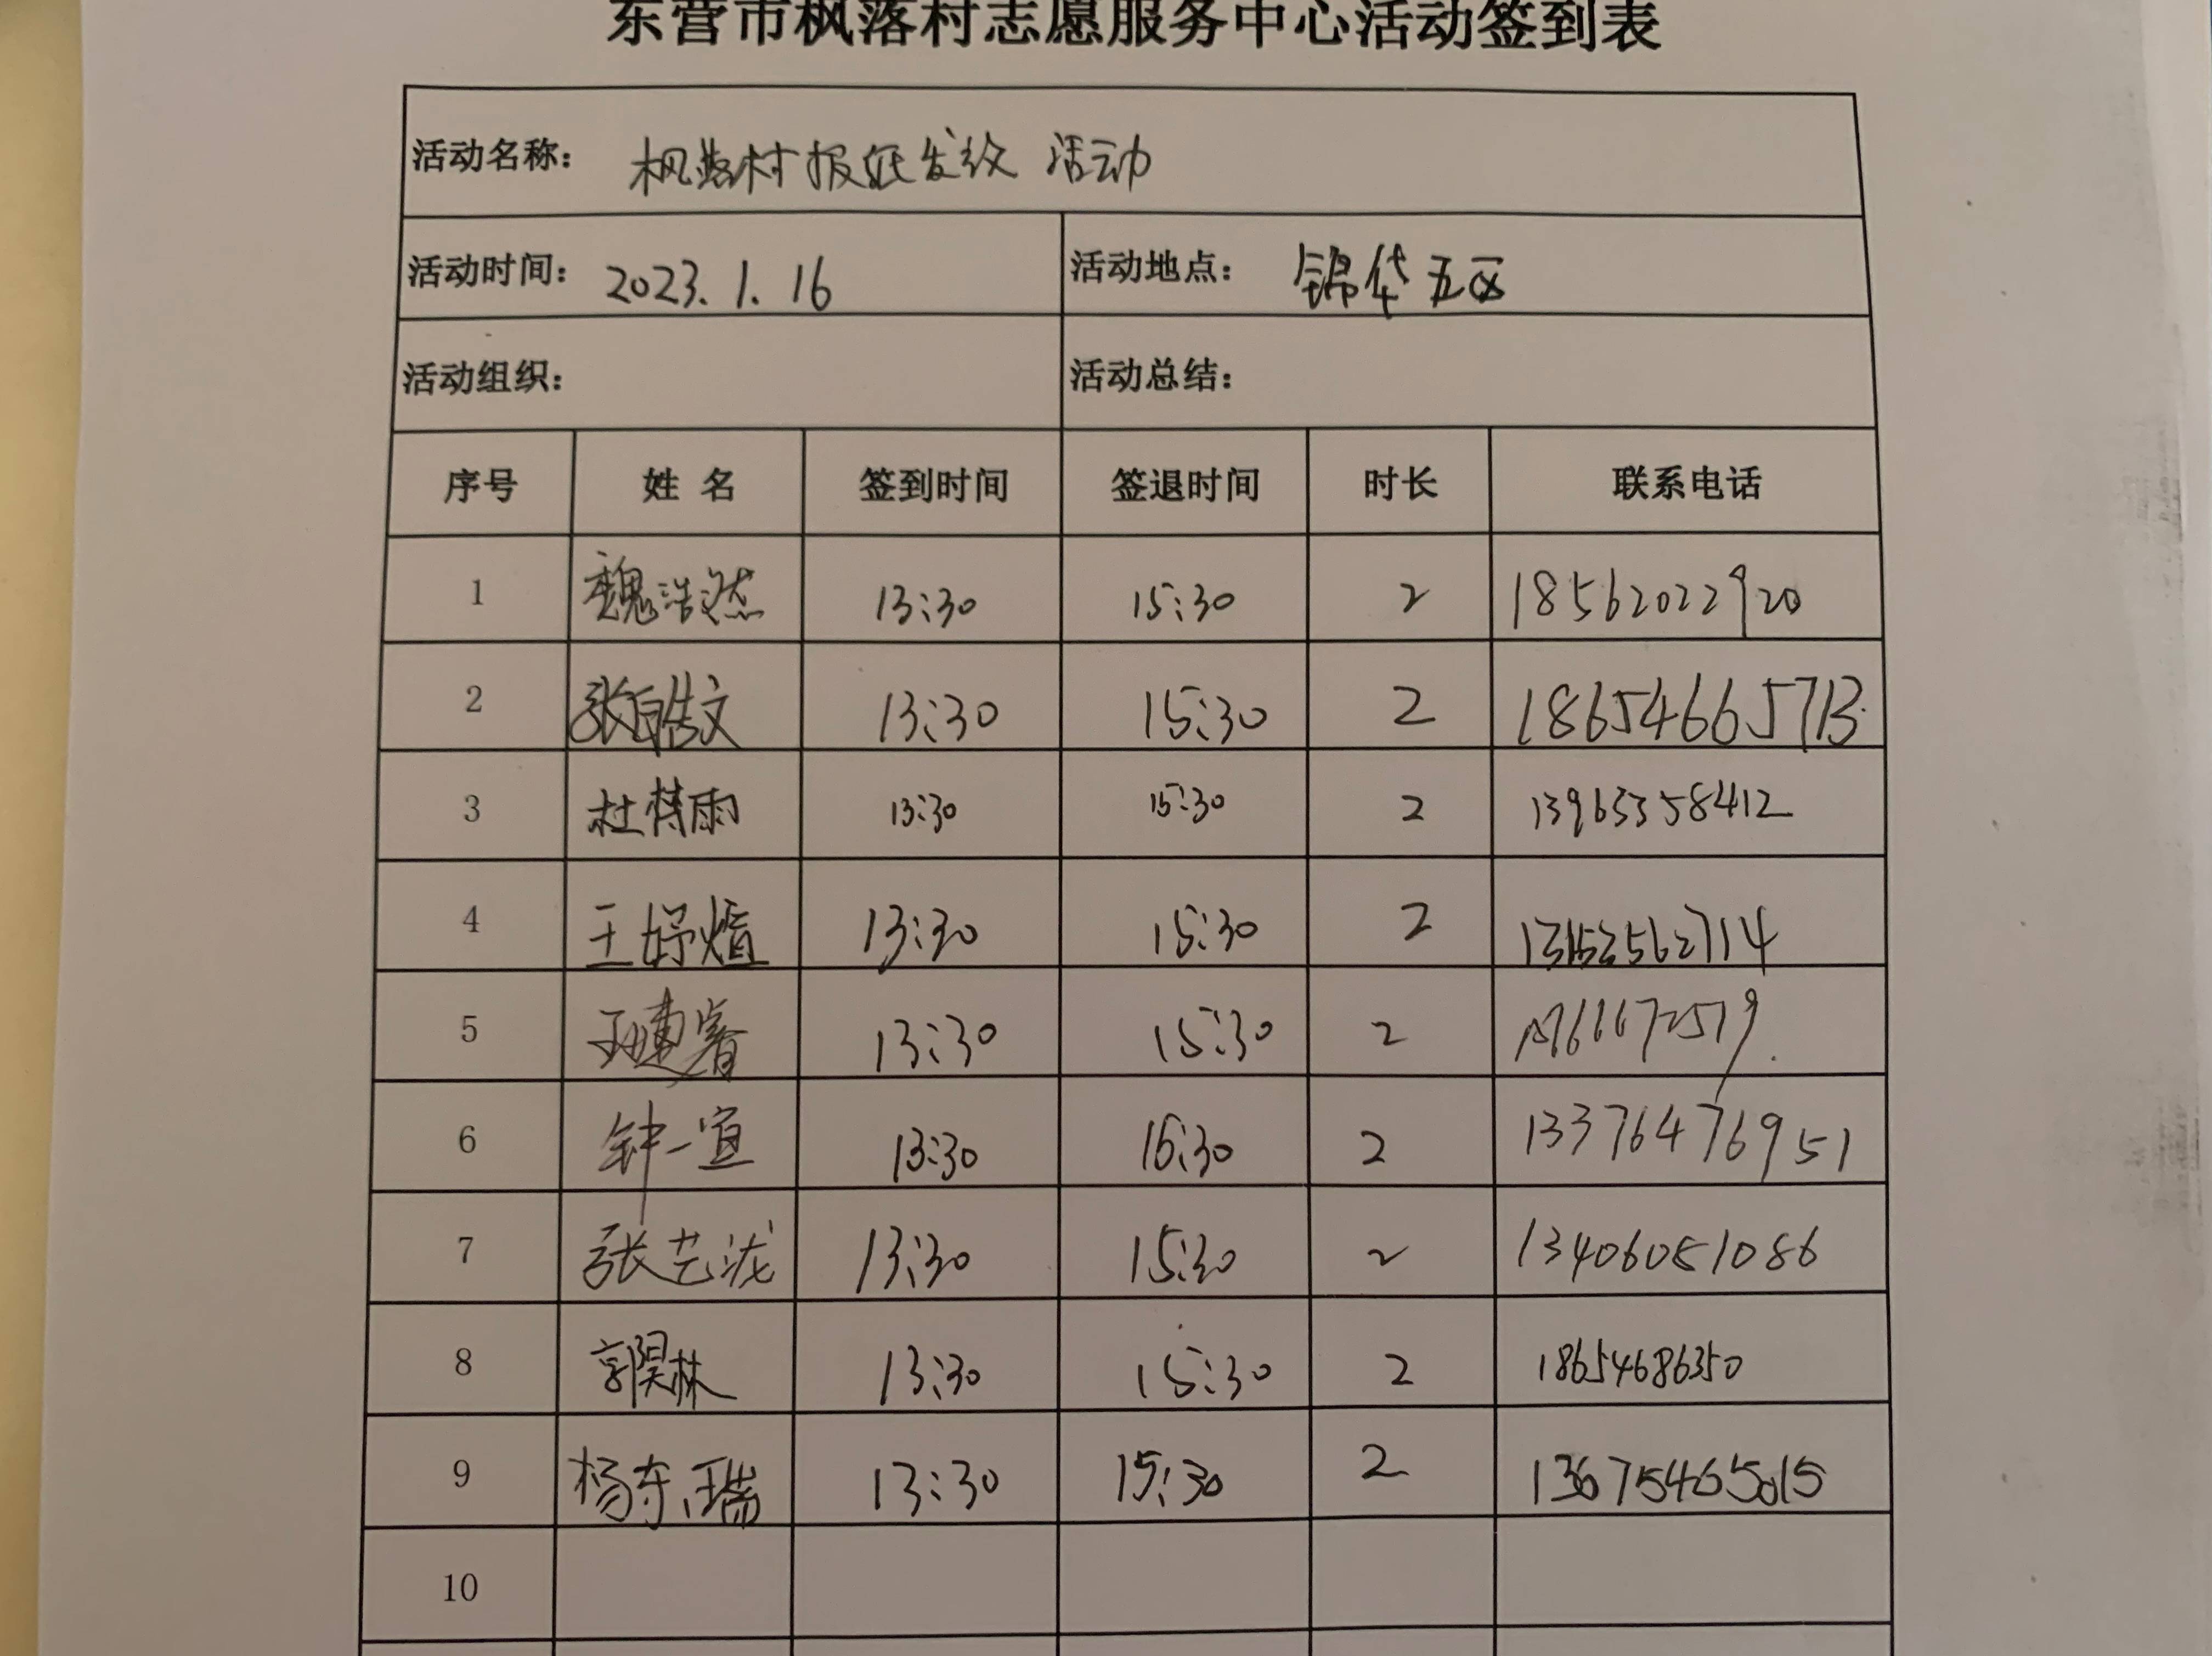 东营市枫落村志愿服务中心活动签到表
活动名称： 枫落村报纸发放 活动
活动时间： 2023.1.16 活动地点： 锦华五区
活动组织： 活动总结：
序号 姓 名 签到时间 签退时间 时长 联系电话
1 魏浩然 13:30 15:30 2 18562022920
2 张皓文 13:30 15:30 2 18654665713
3 杜梦雨 13:30 15:30 2 13963358412
4 王妤煊 13:30 15:30 2
5 13:30 15:30 2
6 钟一宣 13:30 15:30 2 13376476951
7 张艺泷 13:30 15:30 2 13406081086
8 郭昊林 13:30 15:30 2 18654686350
9 杨东瑞 13:30 15:30 2 13675465015
10